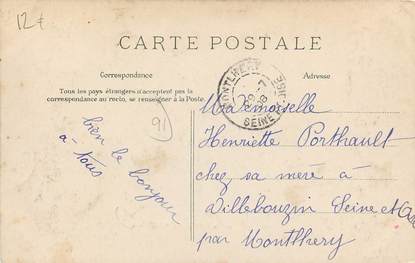 12€
CARTE POSTALE
Correspondance
Tous les pays étrangers n'acceptent pas la
correspondance au recto, se renseigner à la Poste.
Adresse
MONTLHERY
SEINE
91
bien le bonjour
à tous
Mademoiselle
Henriette Porthault
chez sa mère à
Villebouzin Seine et Oise
par Montlhery